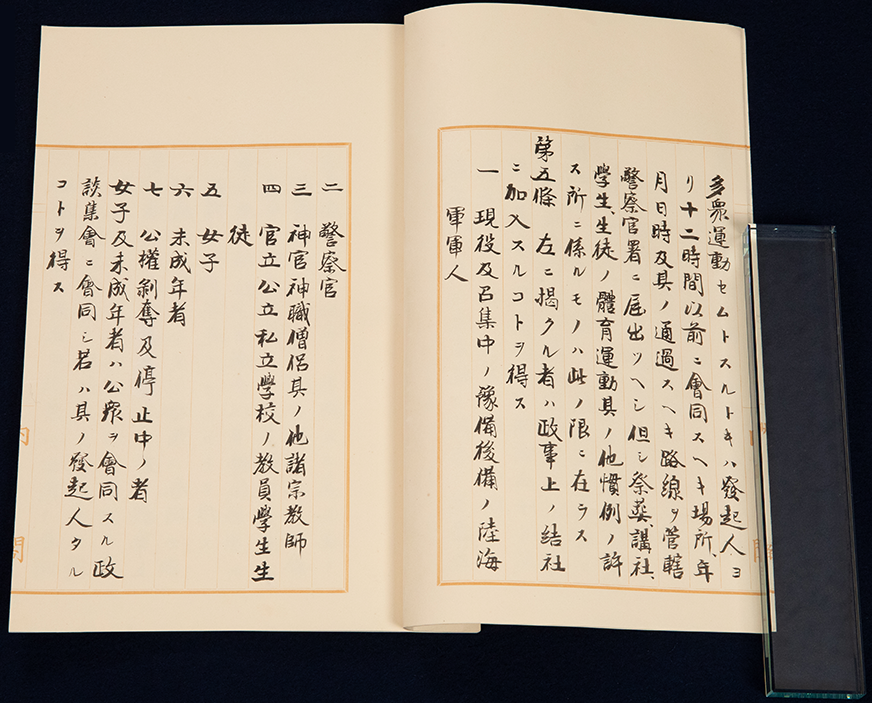 多衆運動セムトスルトキハ發起人ヨ
リ十二時間以前ニ會同スヘキ場所、年
月日時及其ノ通過スヘキ路線ヲ管轄
警察官署ニ屆出ツヘシ但シ祭葬、講社、
學生、生徒ノ體育運動其ノ他慣例ノ許
ス所ニ係ルモノハ此ノ限ニ在ラス
第五條 左ニ揭クル者ハ政事上ノ結社
ニ加入スルコトヲ得ス
一 現役及召集中ノ豫備後備ノ陸海
軍軍人
二 警察官
三 神官神職僧侶其ノ他諸宗教師
四 官立公立私立學校ノ教員學生生
徒
五 女子
六 未成年者
七 公權剝奪及停止中ノ者
女子及未成年者ハ公衆ヲ會同スル政
談集會ニ會同シ若ハ其ノ發起人タル
コトヲ得ス